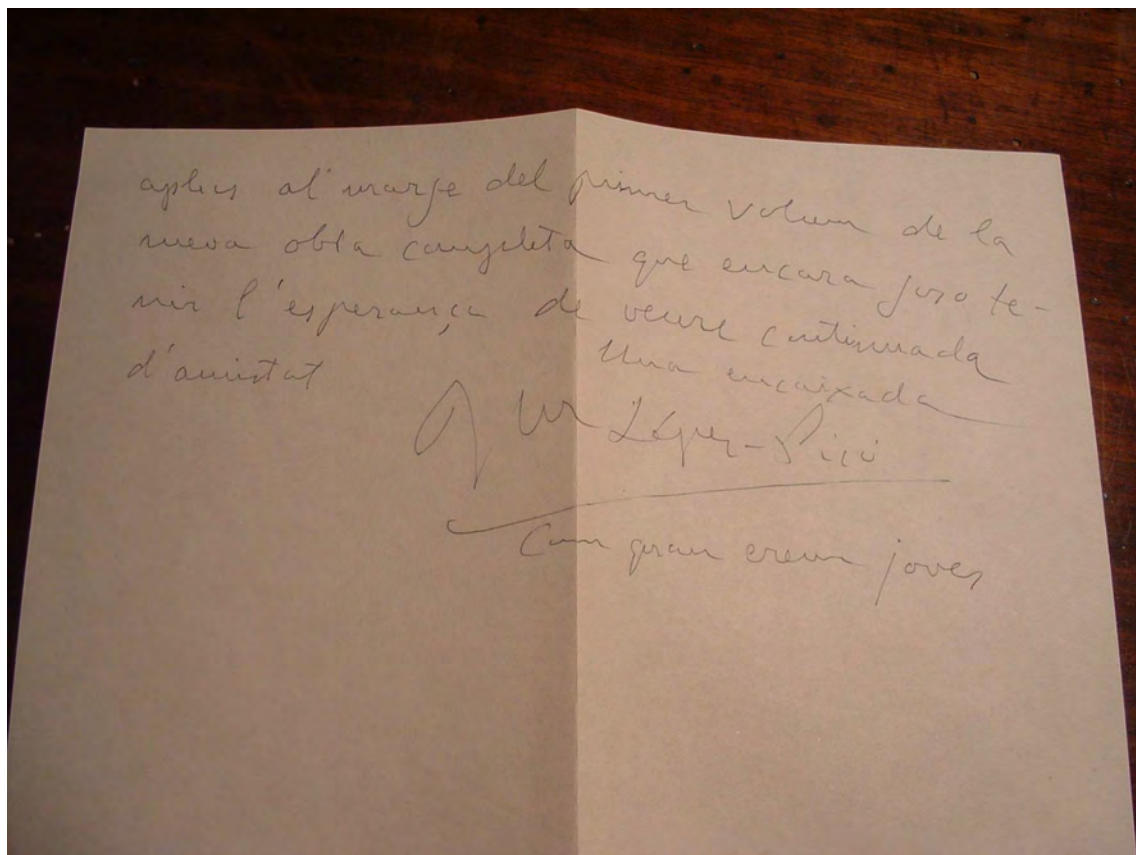 aplecs al'marge del primer volum de la
meva obra completa que encara goso te-
nir l'esperança de veure continuada
d'amistat Una encaixada
J M López-Picó
Com quan erem joves